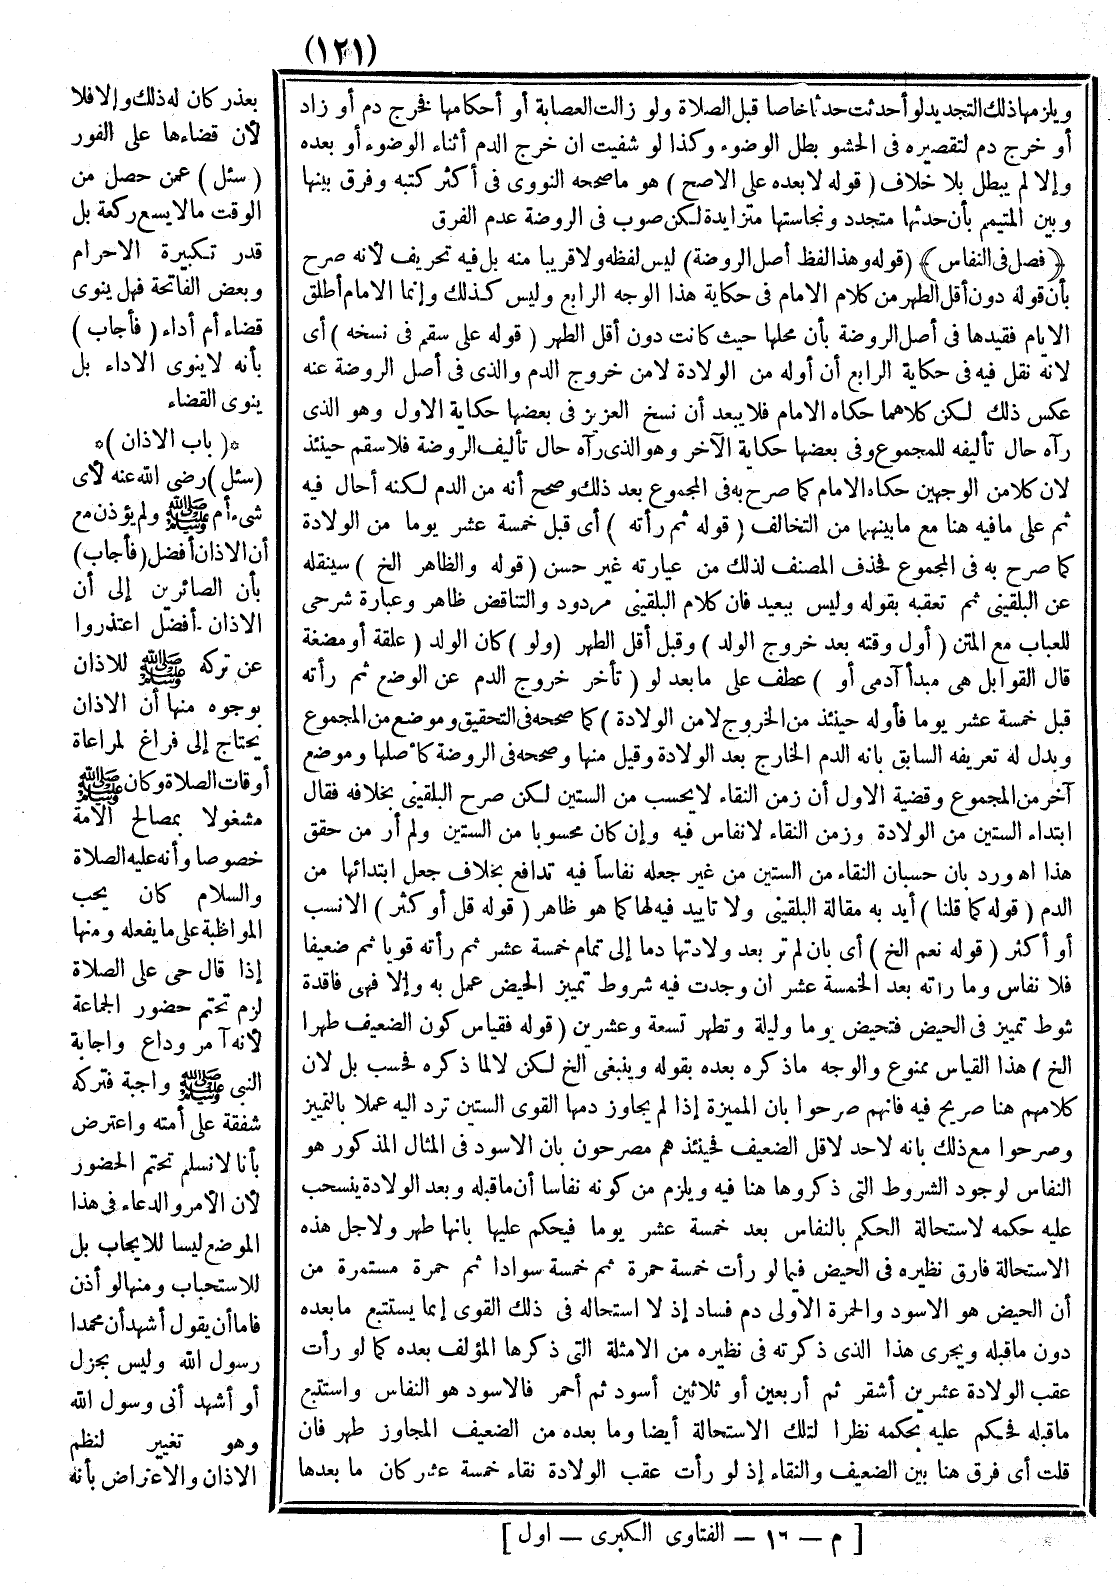 (١٢١)
ويلزمها ذلك التجديد لو أحدثت حدثا خاصا قبل الصلاة ولو زالت العصابة أو أحكامها فخرج دم أو زاد
أو خرج دم لتقصيره فى الحشو بطل الوضوء وكذا لو شفيت ان خرج الدم أثناء الوضوء أو بعده
وإلا لم يبطل بلا خلاف ( قوله لا بعده على الاصح ) هو ما صححه النووى فى أكثر كتبه وفرق بينها
وبين المتيمم بأن حدثها متجدد ونجاستها متزايدة لكن صوب فى الروضة عدم الفرق
﴿ فصل فى النفاس ﴾ (قوله وهذا لفظ أصل الروضة) ليس لفظه ولا قريبا منه بل فيه تحريف لأنه صرح
بأن قوله دون أقل الطهر من كلام الامام فى حكاية هذا الوجه الرابع وليس كذلك وإنما الامام أطلق
الايام فقيدها فى أصل الروضة بأن محلها حيث كانت دون أقل الطهر ( قوله على سقم فى نسخه ) أى
لانه نقل فيه فى حكاية الرابع أن أوله من الولادة لا من خروج الدم والذى فى أصل الروضة عنه
عكس ذلك لكن كلاهما حكاه الامام فلا يبعد أن نسخ العزيز فى بعضها حكاية الاول وهو الذى
رآه حال تأليفه للمجموع وفى بعضها حكاية الآخر وهو الذى رآه حال تأليف الروضة فلا سقم حينئذ
لان كلا من الوجهين حكاه الامام كما صرح به فى المجموع بعد ذلك وصحح أنه من الدم لكنه أحال فيه
ثم على ما فيه هنا مع ما بينهما من التخالف ( قوله ثم رأته ) أى قبل خمسة عشر يوما من الولادة
كما صرح به فى المجموع فحذف المصنف لذلك من عبارته غير حسن ( قوله والظاهر الخ ) سينقله
عن البلقينى ثم تعقبه بقوله وليس ببعيد فان كلام البلقينى مردود والتناقض ظاهر وعبارة شرحى
للعباب مع المتن ( أول وقته بعد خروج الولد ) وقبل أقل الطهر (ولو ) كان الولد ( علقة أو مضغة
قال القوابل هى مبدأ آدمى أو ) عطف على ما بعد لو ( تأخر خروج الدم عن الوضع ثم رأته
قبل خمسة عشر يوما فأوله حينئذ من الخروج لا من الولادة ) كما صححه فى التحقيق وموضع من المجموع
ويدل له تعريفه السابق بانه الدم الخارج بعد الولادة وقيل منها وصححه فى الروضة كأصلها وموضع
آخر من المجموع وقضية الاول أن زمن النقاء لا يحسب من الستين لكن صرح البلقينى بخلافه فقال
ابتداء الستين من الولادة وزمن النقاء لا نفاس فيه وإن كان محسوبا من الستين ولم أر من حقق
هذا اه ورد بان حسبان النقاء من الستين من غير جعله نفاساً فيه تدافع بخلاف جعل ابتدائها من
الدم ( قوله كما قلنا ) أيد به مقالة البلقينى ولا تاييد فيه لها كما هو ظاهر ( قوله قل أو كثر ) الانسب
أو أكثر ( قوله نعم الخ ) أى بان لم تر بعد ولادتها دما إلى تمام خمسة عشر ثم رأته قويا ثم ضعيفا
فلا نفاس وما رأته بعد الخمسة عشر ان وجدت فيه شروط تمييز الحيض عمل به وإلا فهى فاقدة
شوط تمييز فى الحيض فتحيض يوما وليلة وتطهر تسعة وعشرين ( قوله فقياس كون الضعيف طهرا
الخ ) هذا القياس ممنوع والوجه ما ذكره بعده بقوله وينبغى الخ لكن لا لما ذكره فحسب بل لان
كلامهم هنا صريح فيه فانهم صرحوا بان المميزة إذا لم يجاوز دمها القوى الستين ترد اليه عملا بالتمييز
وصرحوا مع ذلك بانه لا حد لاقل الضعيف فحينئذ هم مصرحون بان الاسود فى المثال المذكور هو
النفاس لوجود الشروط التى ذكروها هنا فيه ويلزم من كونه نفاسا أن ما قبله وبعد الولادة ينسحب
عليه حكمه لاستحالة الحكم بالنفاس بعد خمسة عشر يوما فيحكم عليها بانها طهر ولاجل هذه
الاستحالة فارق نظيره فى الحيض فيما لو رأت خمسة حمرة ثم خمسة سوادا ثم حمرة مستمرة من
أن الحيض هو الاسود والحمرة الاولى دم فساد إذ لا استحاله فى ذلك القوى إنما يستتبع ما بعده
دون ما قبله ويجرى هذا الذى ذكرته فى نظيره من الامثلة التى ذكرها المؤلف بعده كما لو رأت
عقب الولادة عشرين أشقر ثم أربعين أو ثلاثين أسود ثم أحمر فالاسود هو النفاس واستتبع
ما قبله فحكم عليه بحكمه نظرا لتلك الاستحالة أيضا وما بعده من الضعيف المجاوز طهر فان
قلت أى فرق هنا بين الضعيف والنقاء إذ لو رأت عقب الولادة نقاء خمسة عشر كان ما بعدها
بعذر كان له ذلك وإلا فلا
لأن قضاءها على الفور
( سئل ) عمن حصل من
الوقت ما لا يسع ركعة بل
قدر تكبيرة الاحرام
وبعض الفاتحة فهل ينوى
قضاء أم أداء ( فأجاب )
بأنه لا ينوى الاداء بل
ينوى القضاء
*( باب الاذان )*
(سئل) رضى الله عنه لأى
شىء أم ﷺ ولم يؤذن مع
أن الاذان أفضل (فأجاب)
بأن الصائرين إلى أن
الاذان أفضل اعتذروا
عن تركه ﷺ للاذان
بوجوه منها أن الاذان
يحتاج إلى فراغ لمراعاة
أوقات الصلاة وكان ﷺ
مشغولا بمصالح الامة
خصوصا وأنه عليه الصلاة
والسلام كان يحب
المواظبة على ما يفعله ومنها
إذا قال حى على الصلاة
لزم تحتم حضور الجماعة
لأنه آمر وداع واجابة
النبى ﷺ واجبة فتركه
شفقة على أمته واعترض
بأنا لا نسلم تحتم الحضور
لأن الأمر والدعاء فى هذا
الموضع ليسا للايجاب بل
للاستحباب ومنها لو أذن
فاما أن يقول أشهد أن محمدا
رسول الله وليس بجزل
أو أشهد أنى رسول الله
وهو تغيير لنظم
الاذان والاعتراض بأنه
[ م – ١٦ – الفتاوى الكبرى – اول ]